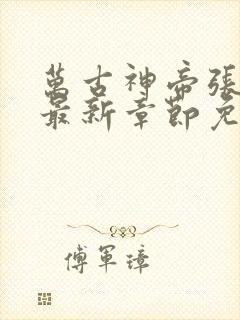 萬古神帝張
最新章節免
傅軍璋